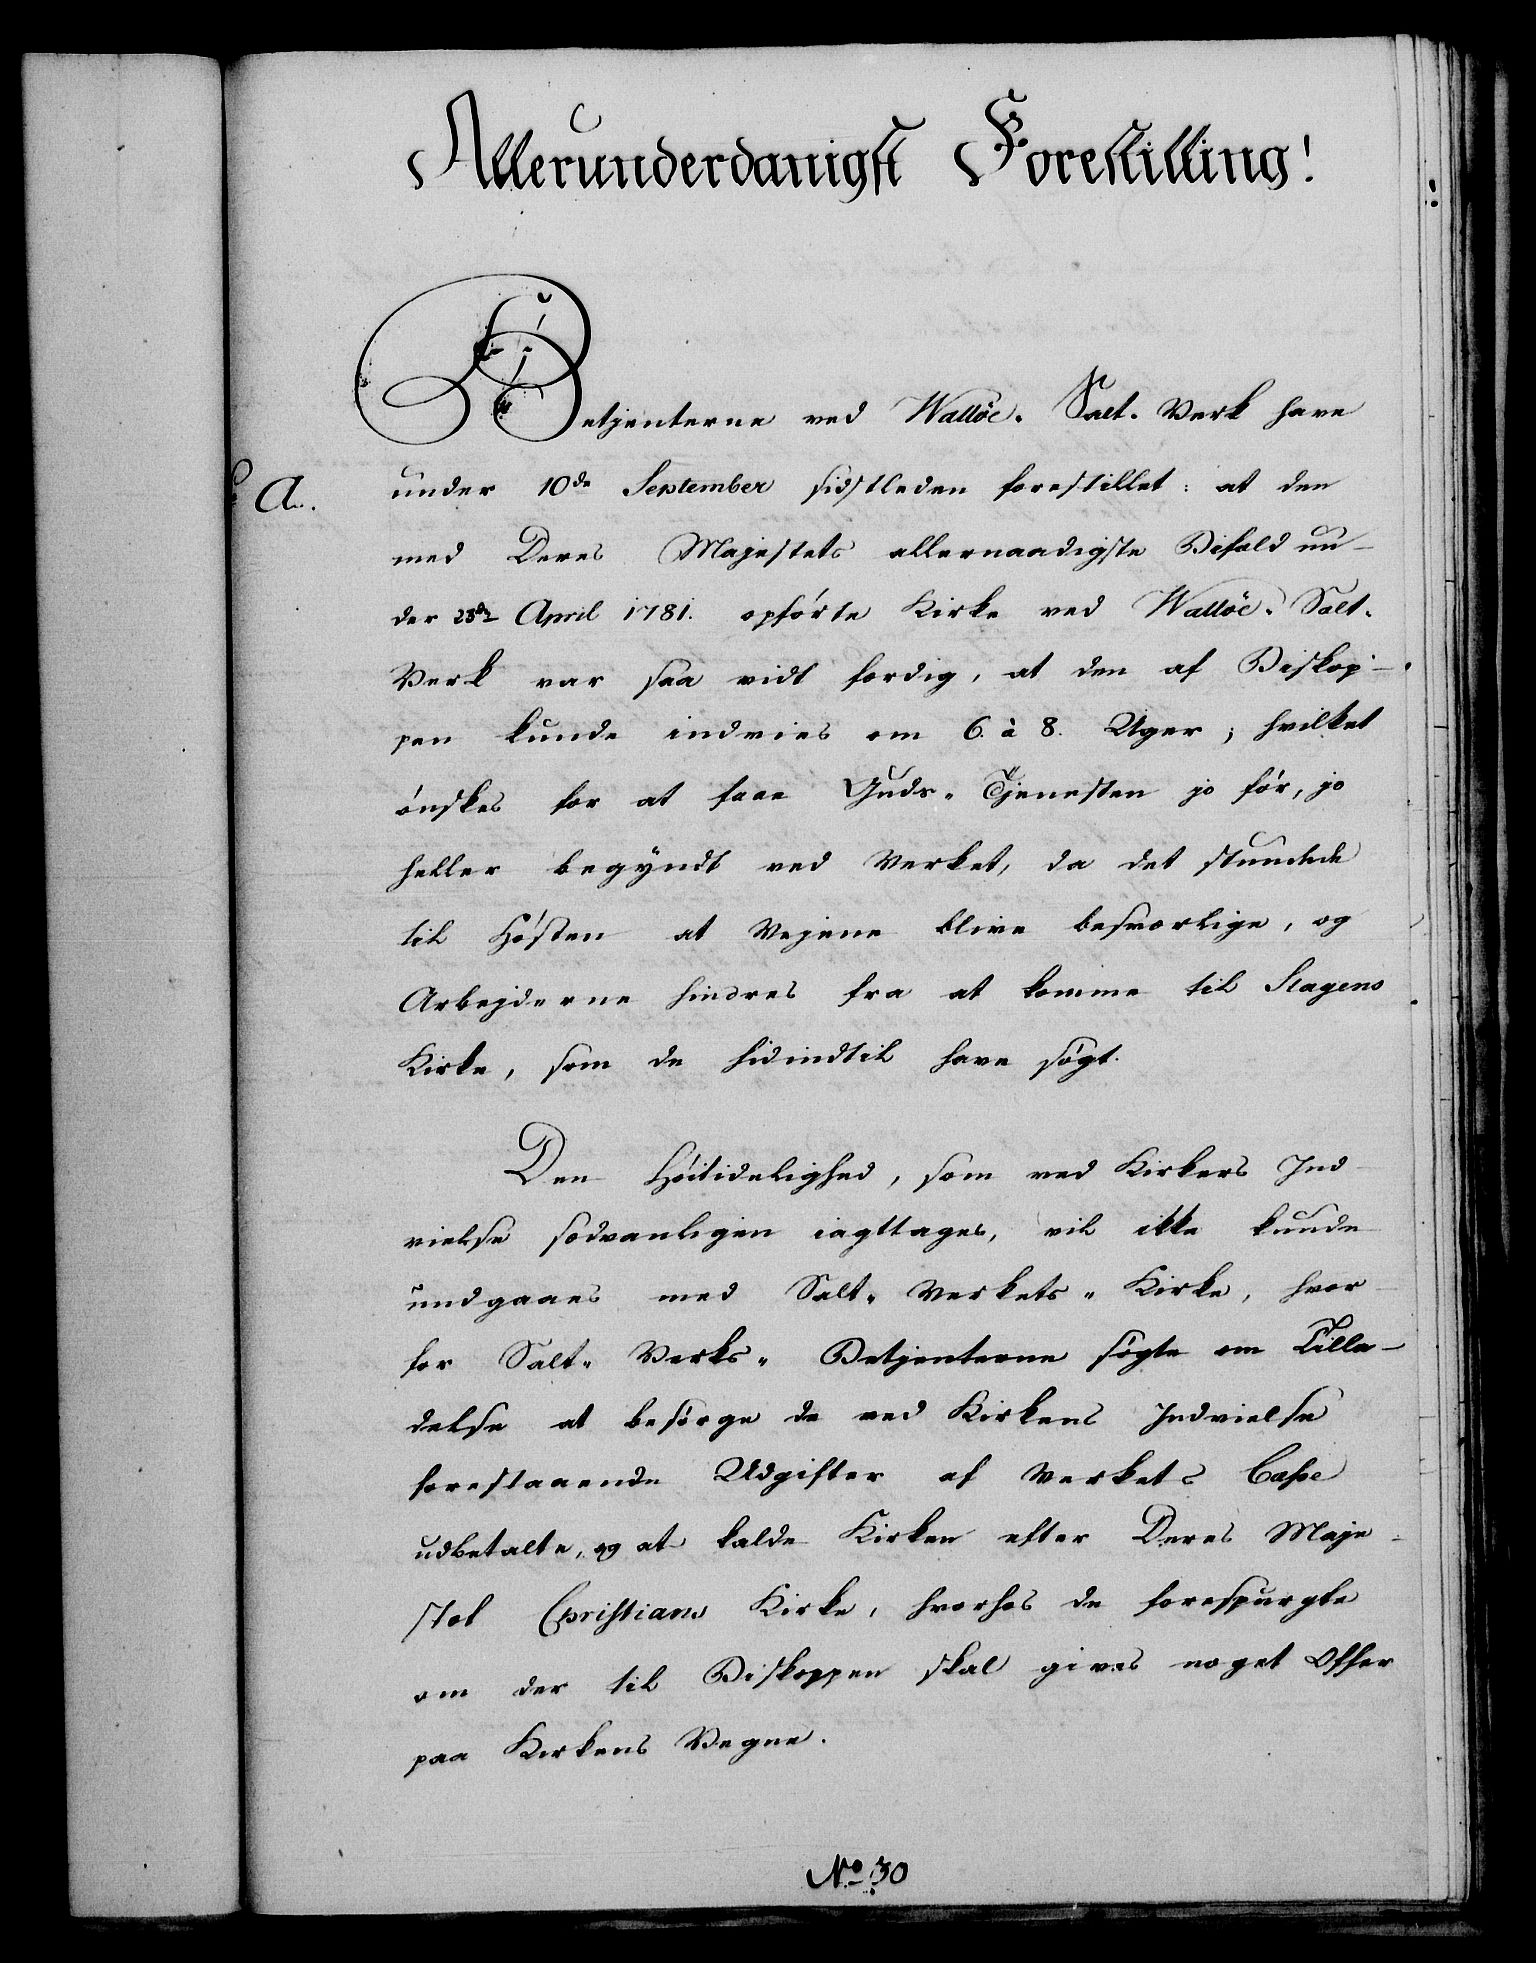 Allerunderdanigst Forestilling!
Betjenterne ved Walløe-Salt-Verk have
A.
under 10de September sidstleden forestillet: at den
med Deres Majestets allernaadigste Bifald un-
der 23de April 1781. opførte Kirke ved Walløe-Salt-
Verk var saa vidt færdig, at den af Biskop-
pen kunde indvies om 6. à 8. Uger; hvilket
ønskes for at faae Guds-Tjenesten jo før, jo
heller begyndt ved Verket, da det stundede
til Høsten at Vejene blive besværlige, og
Arbejderne hindres fra at komme til Slagens
Kirke, som de hidindtil have søgt.
Den Høitidelighed, som ved Kirkers Ind-
vielse sædvanligen iagttages, vil ikke kunde
undgaaes med Salt-Verkets-Kirke, hvor-
for Salt-Verks-Betjenterne søgte om Tilla-
delse at besørge de ved Kirkens Indvielse
forestaaende Udgifter af Verkets Casse
udbetalte, og at kalde Kirken efter Deres Maje-
stæt Christians Kirke, hvorhos de forespurgte
om der til Biskoppen skal gives noget Offer
paa Kirkens Vegne.
No 30